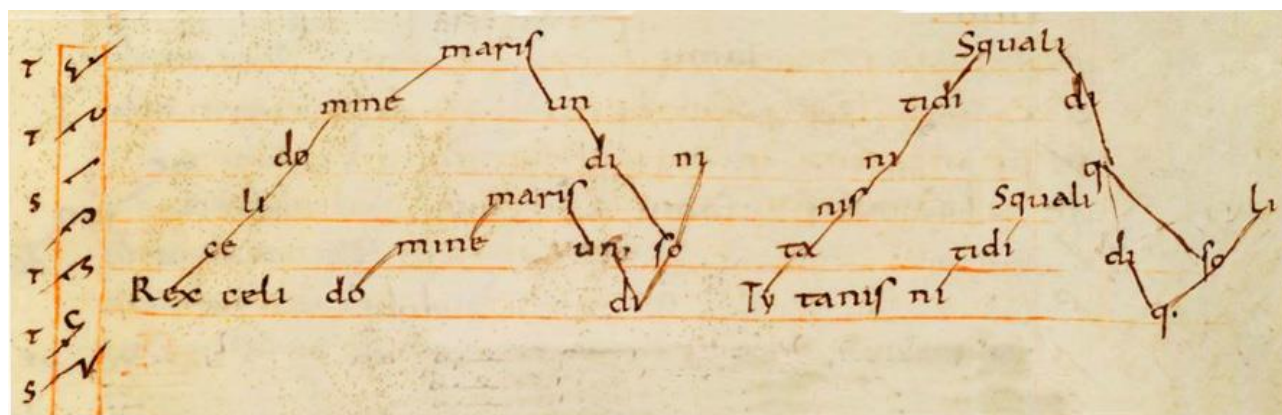 maris Squali
T
mine un tidi di
T
do di ni ni q
li maris nis Squali li
S
ce mine un. so ta tidi di so
T
Rex celi do di Ty tanis ni q.
T
T
S